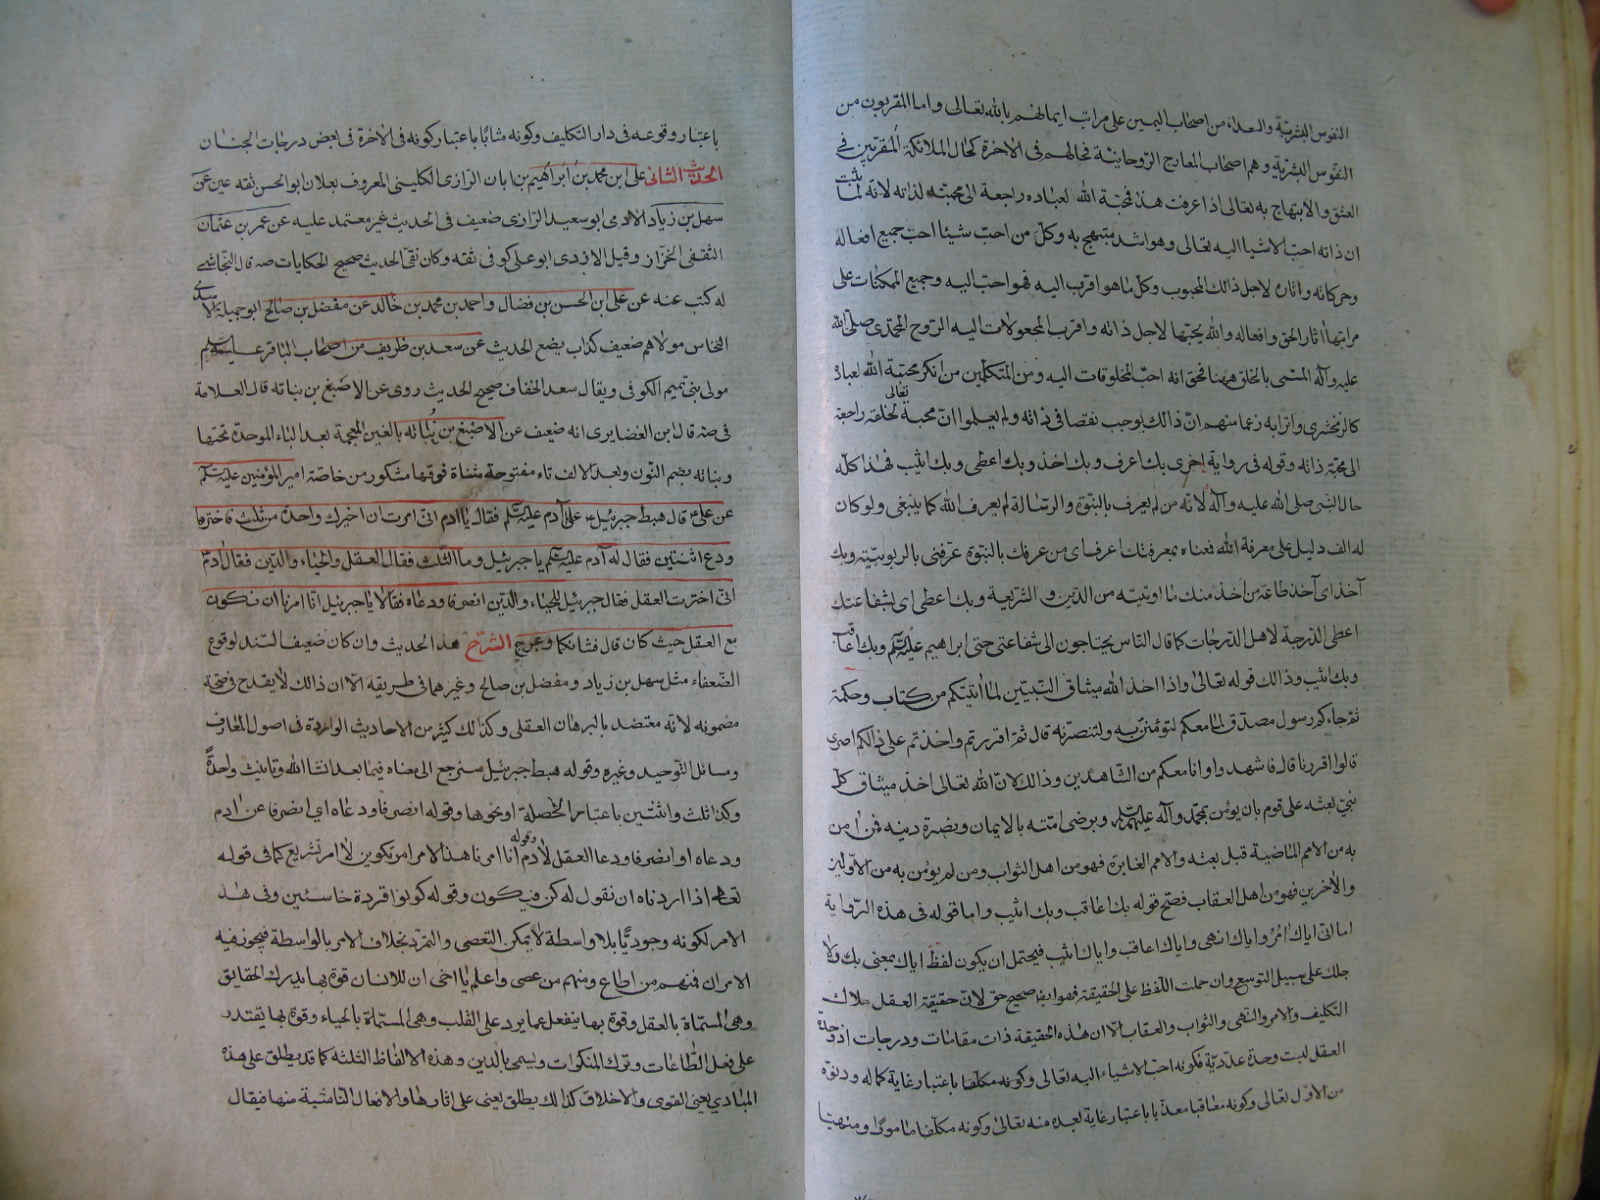 النفوس البشرية والسعداء من اصحاب اليمين على مراتب ايمانهم بالله تعالى واما المقربون من
النفوس البشرية وهم اصحاب المعارج الروحانية فحالهم فى الاخرة كحال الملائكة المقربين فى
العشق والابتهاج به تعالى اذا عرفت هذا فمحبة الله لعباده راجعة الى محبته لذاته لانه لما ثبت
ان ذاته احب الاشياء اليه تعالى وهو اشد مبتهج به وكل من احب شيئا احب جميع افعاله
وحركاته واثاره لاجل ذلك المحبوب وكل ما هو اقرب اليه فهو احب اليه وجميع الممكنات على
مراتبها اثار الحق وافعاله والله يحبها لاجل ذاته واقرب المجعولات اليه الروح المحمدى صلى الله
عليه وآله المسمى بالخلق ههنا فحق انه احب المخلوقات اليه ومن المتكلمين من انكر محبة الله لعباده
كالزمخشرى واترابه زعما منهم ان ذلك يوجب نقصا فى ذاته ولم يعلموا ان محبة تعالى لخلقه راجعة
الى محبة ذاته وقوله فى رواية اخرى بك اعرف وبك اخذ وبك اعطى وبك اثيب فهذا كله
حال النبى صلى الله عليه وآله لانه من لم يعرف بالنبوة والرسالة لم يعرف الله كما ينبغى ولو كان
له الف دليل على معرفة الله فمعناه بمعرفتك اعرف اى من عرفك بالنبوة عرفنى بالربوبية وبك
آخذ اى آخذ طاعة من اخذ منك ما اوتيته من الدين والشريعة وبك اعطى اى بشفاعتك
اعطى الدرجة لاهل الدرجات كما قال الناس يحتاجون الى شفاعتى حتى ابراهيم عليه السلم وبك اعاقب
وبك اثيب وذلك قوله تعالى واذا اخذ الله ميثاق النبيين لما اتيتكم من كتاب وحكمة
ثم جاءكم رسول مصدق لما معكم لتؤمنن به ولتنصرنه قال ءاقررتم واخذتم على ذلكم اصرى
قالوا اقررنا قال فاشهدوا وانا معكم من الشاهدين وذلك لان الله تعالى اخذ ميثاق كل
نبى بعثه على قوم بان يؤمن بمحمد وآله عليهم السلم ويرضى امته بالايمان ونصرة دينه فمن امن
به من الامم الماضية قبل بعثه والامم الغابرة فهو من اهل الثواب ومن لم يؤمن به من الاولين
والاخرين فهو من اهل العقاب فصح قوله بك اعاقب وبك اثيب واما قوله فى هذه الرواية
اما انى اياك امر واياك انهى واياك اعاقب واياك اثيب فيحتمل ان يكون لفظ اياك بمعنى بك ولا
جلك على سبيل التوسع وان حملت اللفظ على الحقيقة فهو ايضا صحيح حق لان حقيقة العقل ملاك
التكليف والامر والنهى والثواب والعقاب الا ان هذه الحقيقة ذات مقامات ودرجات اذ وحدة
العقل ليست وحدة عددية فكونه احب الاشياء اليه تعالى وكونه مكلفا باعتبار غاية كماله ودنوه
من الاول تعالى وكونه معاقبا معذبا باعتبار غاية بعده منه تعالى وكونه مكلفا مامورا ومنهيا
باعتبار وقوعه فى دار التكليف وكونه مثابا باعتبار كونه فى الاخرة فى بعض درجات الجنان
الحديث الثانى على ابن محمد بن ابراهيم بن ابان الرازى الكلينى المعروف بعلان ابو الحسن ثقة عين عن
سهل بن زياد الادمى ابو سعيد الرازى ضعيف فى الحديث غير معتمد عليه عن عمر بن عثمان
الثقفى الخزاز وقيل الازدى ابو على كوفى ثقة وكان نقى الحديث صحيح الحكايات صه قال النجاشى
له كتب عنه عن على ابن الحسن بن فضال واحمد بن محمد بن خالد عن مفضل بن صالح ابو جميلة الاسدى
النخاس مولاهم ضعيف كذاب يضع الحديث عن سعد بن ظريف من اصحاب الباقر عليه السلم
مولى بنى تميم الكوفى ويقال سعد الخفاف صحيح الحديث روى عن الاصبغ بن نباته قال العلامة
فى صه قال ابن الغضايرى انه ضعيف عن الاصبغ بن نباته بالغين المعجمة بعد الباء الموحدة تحتها
وبناته بضم النون وبعد الالف تاء مفتوحة مثناة فوقها مشكور من خاصة امير المؤمنين عليه السلم
عن على ع قال هبط جبرئيل ع على آدم عليه السلم فقال يا ادم انى امرت ان اخيرك واحدة من ثلث فاخترها
ودع اثنتين فقال له آدم عليه السلم يا جبرئيل وما الثلث فقال العقل والحياء والدين فقال ادم
انى اخترت العقل فقال جبرئيل للحياء والدين انصرفا ودعاه فقالا يا جبرئيل انا امرنا ان نكون
مع العقل حيث كان قال فشانكما وعرج الشرح هذا الحديث وان كان ضعيف السند لوقوع
الضعفاء مثل سهل بن زياد ومفضل بن صالح وغيرهما فى طريقه الا ان ذلك لا يقدح فى صحة
مضمونه لانه معتضد بالبرهان العقلى وكذلك كثير من الاحاديث الواردة فى اصول المعارف
ومسائل التوحيد وغيره وقوله هبط جبرئيل سنرجع الى معناه فيما بعد انشاالله وتانيث واحدة
وكذا ثلث واثنتين باعتبار الخصلة او نحوها وقوله انصرفا ودعاه اى انصرفا عن ادم
ودعاه او انصرفا ودعا العقل لادم وقوله انا امرنا هذا الامر امر تكوين لا امر تشريع كما فى قوله
تعالى اذا اردناه ان نقول له كن فيكون وقوله كونوا قردة خاسئين وفى هذا
الامر لكونه وجوديا بلا واسطة لا يمكن التعصى والتمرد بخلاف الامر بالواسطة فيجوز فيه
الامران فمنهم من اطاع ومنهم من عصى واعلم يا اخى ان للانسان قوة بها يدرك الحقايق
وهى المسماة بالعقل وقوة بها ينفعل عما يرد على القلب وهى المسماة بالحياء وقوة بها يقتدر
على فعل الطاعات وترك المنكرات ويسمى بالدين وهذه الالفاظ الثلثه كما قد يطلق على هذه
المبادى يعنى القوى والاخلاق كذلك يطلق يعنى على اثارها والافعال الناشية منها فيقال